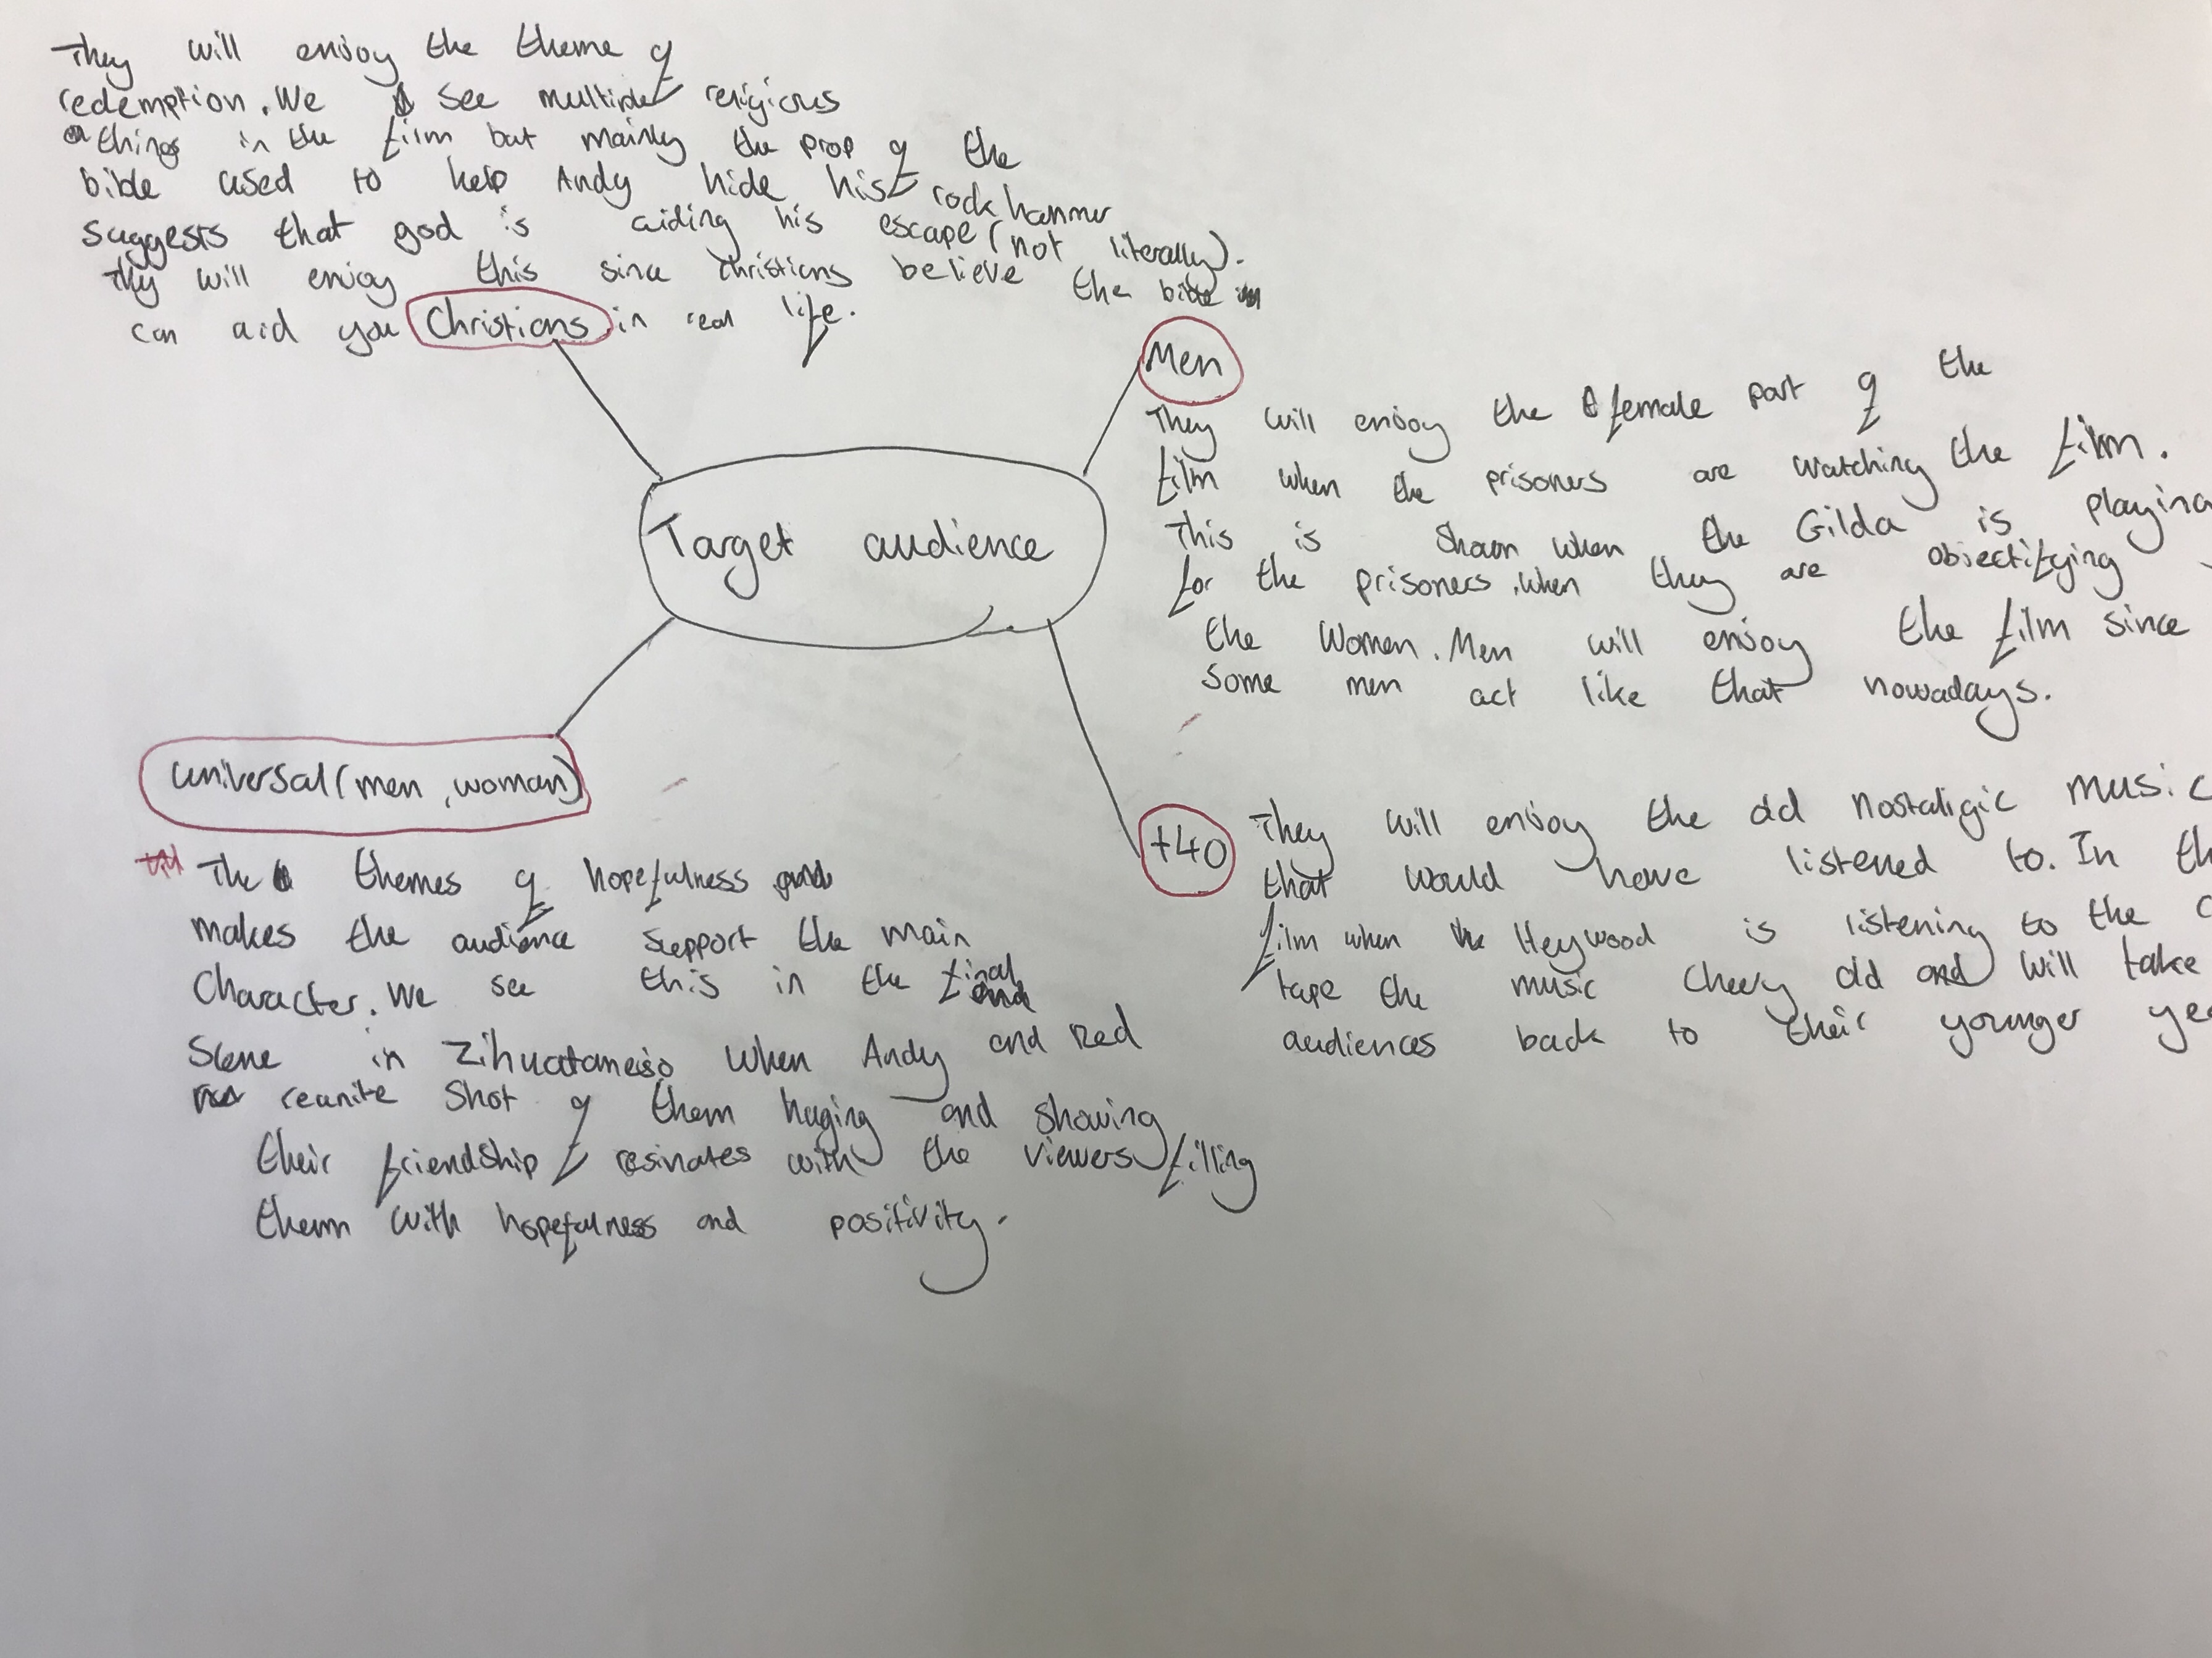 They will enjoy the theme of
redemption. We see multiple religious
things in the film but mainly the prop of the
bible used to help Andy hide his rock hammer
suggests that god is aiding his escape (not literally).
They will enjoy this since christians believe the bible
can aid you in real life.
Christians
Men
They will enjoy the female part of the
film when the prisoners are watching the film.
This is shown when the Gilda is playing
for the prisoners. when they are objectifying
the Women. Men will enjoy the film since
some men act like that nowadays.
Target audience
universal (men, woman)
The themes of hopefulness
makes the audience support the main
character. We see this in the final
Scene in Zihuatanejo when Andy and Red
reunite shot of them huging and showing
their friendship resinates with the viewers filling
them with hopefulness and positivity.
+40
They will enjoy the old nostaligic music
that would have listened to. In
film when Heywood is listening to the
tape the music cheery old and will take
audiences back to their younger